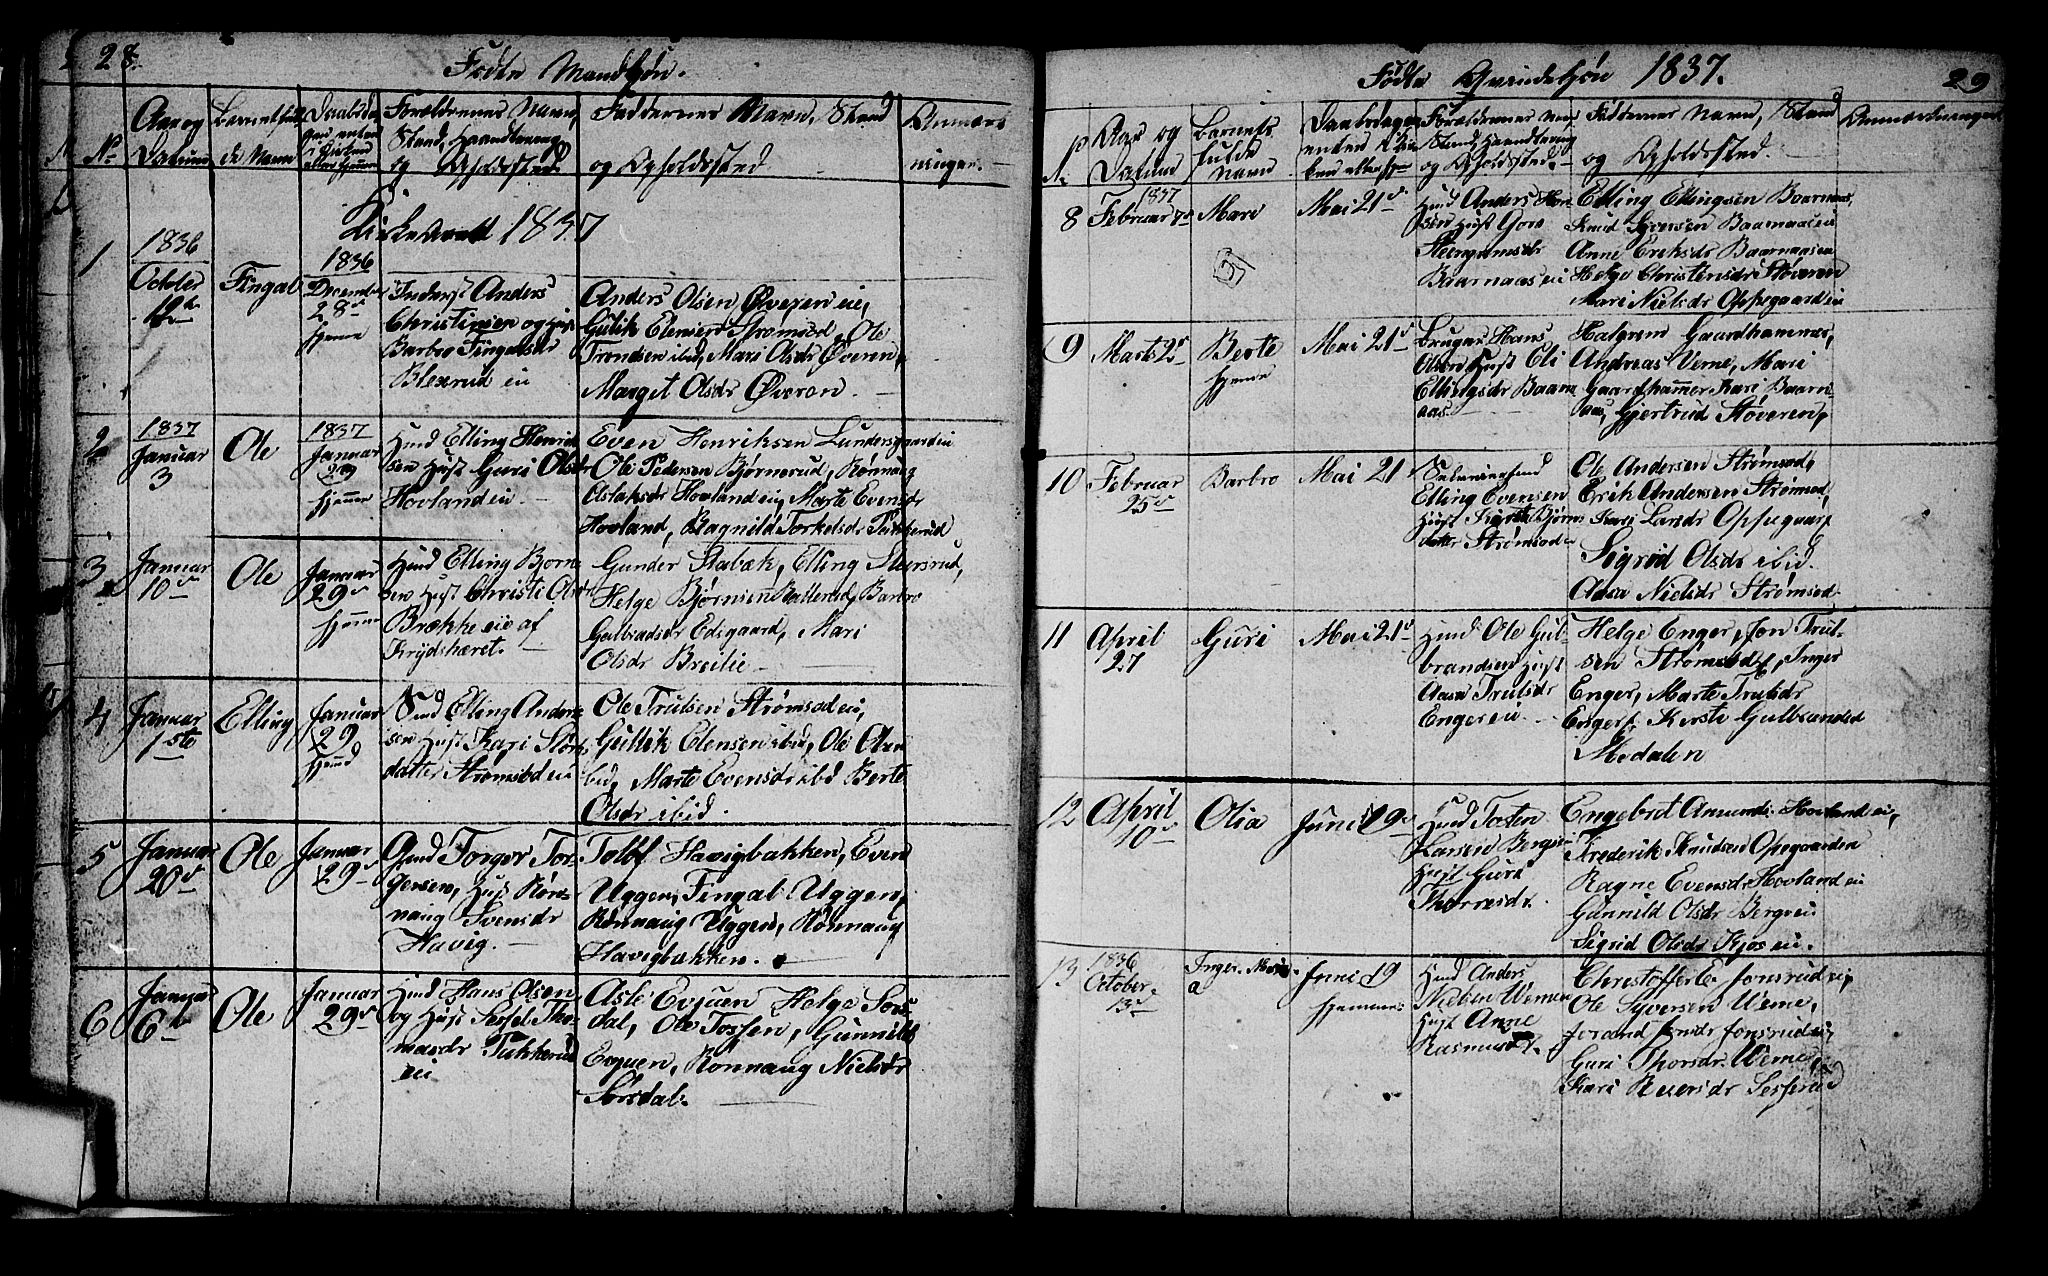 28.
Fødte Mandkjøn.
No
Aar og Datum
Barnets fulde Navn
Daabsdagen enten i Kirken eller hjemme
Forældrenes Navn, Stand, Haandtering og Opholdssted
Faddernes Navn, Stand og Opholdssted
Anmærkninger.
Kirkeaaret 1837
1
1836
October
12te
Fingal
1836
December
28de
hjemme
Inderst Anders
Christensen og
Barbro Fingalsdr
eie
Anders Olsen, Øveren eie,
Gulik Strømsod, Ole
Trondsen ibid, Mari Olsdr Øveren,
Marget Olsdr Øveren. —
2
1837
Januar
3
Ole
1837
Januar
29
hjemme
Huusmd Elling Henrik
sen Hust Guri Olsdr
Hovland eie —
Even Henriksen Lundersgaard eie
Ole Pedersen Bjørnerud, Rønnaug
Aslaksdr Hovland eie, Marte Evensdr
Hovland, Ragnild Torkelsdr Tukkerud
3
Januar
10de
Ole
Januar
29de
hjemme
Huusmd Elling Bjørn
sen Hust Christi Olsdr
Brække eie af
Krydsheret. —
Gunder Stabæk, Elling
Helge Bjørnsen Barbro
Gulbrandsdr Edsgaard, Mari
Olsdr Breilie —
4
Januar
1ste
Elling
Januar
29
hjemme
Elling Anders
sen Hust Kari
datter Strømsod eie
Ole Trulsen Strømsod eie,
Gullik Elensen ibid, Ole Olsen
ibid, Marte Evensdr ibid Berte
Olsdr ibid.
5
Januar
20de
Ole
Januar
29de
Gmd Torger Tor
gersen, Hust Røn
naug Svensdr
Havig. —
Tolöf Havigbakken, Even
Uggen, Fingal Uggen,
Rønnaug Uggen, Rønnaug
Havigbakken. —
6
Januar
6te
Ole
Januar
29de
Huusmd Hans Olsen
og Hust Sessel Tho
masdr Tukkerud
eie
Asle Evjuen Helge Sørs
dal, Ole Tossen, Gunnild
Evjuen, Rønnaug Nielsdr
Sørsdal. —
Fødte Qvindekjøn 1837.
29
No
Aar og Datum
Barnets fulde Navn
Daabsdagen enten i Kirken eller hjemme
Forældrenes Navn Stand, Haandtering og Opholdssted. —
Faddernes Navn, Stand og Opholdssted. —
Anmærkninger
8
1837
Februar 7de
Mari
Mai 21de
Huusmd Anders
sen Hust Goro
Steengrimsdr
Baarnaas eie
Elling Ellingsen Baarnaas,
Knud Syversen Baarnaas eie
Anne Eriksdr Baarnaas eie
Helge Christensdr Støveren
Mari Nielsdr Oppegaard eie
9
Marts 2den
Berte
hjemme
Mai 21de
Bruger Hans
Olsen Hust Eli
Ellingsdr Baarn
aas. —
Halgrim Gaardhammer,
Andreas Verne, Mari
Gaardhammer Kari Baarn
aas, Gjertrud Støveren,
10
Februar
25de
Barbro
Mai 21
Elling Evensen
Hust Bjørns
datter Strømsod
Ole Andersen Strømsod,
Erik Andersen Strømsod,
Kari Larsdr Oppegaard
Sigrid Olsdr ibid.
Aasa Nielsdr Strømsod.
11
April
27
Guri
Mai 21de
Huusmd Ole Gul
brandsen Hust
Aase Trulsdr
Enger eie. —
Helge Enger, Jon Trul-
sen Strømsod, Inger
Enger, Marte Trulsdr
Enger, Kersti Gulbrandsd
Modalen
12
April
10de
Olia
Juni 19de
Huusmd Tosten
Larsen Berg eie
Hust Guri
Thorresdr.
Engebret Amunds. Hovland eie,
Frederik Knudsen Opegaarden
Ragne Evensdr Hovland eie
Gunnild Olsdr Berg eie
Sigrid Olsdr Kjos eie.
13
1836
October
13de
Inger Mari-
a
Juni 19
hjemme
Huusmd Anders
Nielsen Werne
Hust Anne
Rasmusdr.
Christoffer E. Jonsrud eie,
Ole Syversen Werne,
Jorand Jonsdr Jonsrud eie,
Guri Thorsdr. Werne
Kari Reiersdr